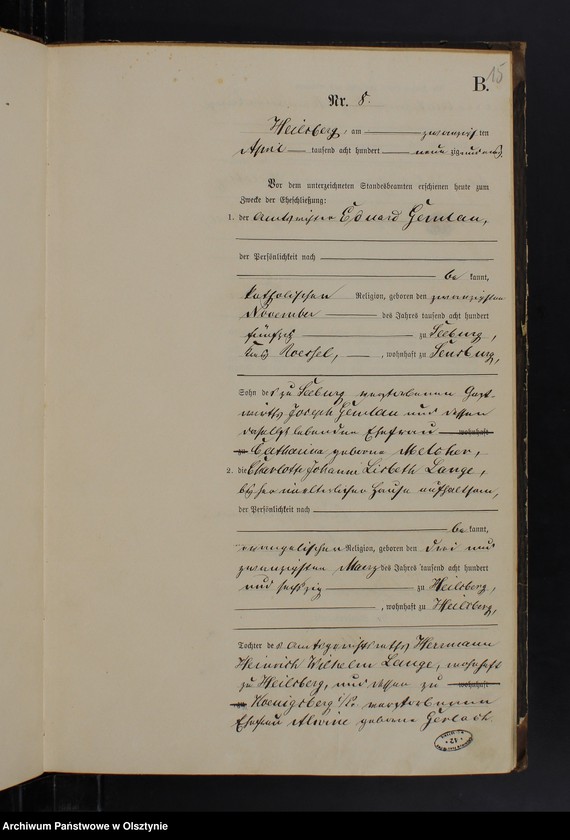 15
B.
Nr. 8.
Heilsberg, am zwanzigsten
April tausend acht hundert neunzig und
Vor dem unterzeichneten Standesbeamten erschienen heute zum
Zwecke der Eheschließung:
1. der Amtsrichter Eduard
der Persönlichkeit nach
be kannt,
katholischen Religion, geboren den zwanzigsten
November des Jahres tausend acht hundert
fünfzig zu Seeburg,
Kreis Roessel, wohnhaft zu Sensburg,
Sohn des zu Seeburg verstorbenen Gast-
wirths Joseph und dessen
daselbst lebenden Ehefrau wohnhaft
zu Catharina geborene Melcher,
2. die Charlotte Johanna Lisbeth Lange,
bisher im elterlichen Hause aufhaltsam,
der Persönlichkeit nach
be kannt,
evangelischen Religion, geboren den drei und
zwanzigsten Maerz des Jahres tausend acht hundert
und sechszig zu Heilsberg,
wohnhaft zu Heilsberg,
Tochter des Amtsgerichtsraths Herrmann
Heinrich Wilhelm Lange, wohnhaft
zu Heilsberg, und dessen zu wohnhaft
zu Koenigsberg i/Pr. verstorbenen
Ehefrau Alwine geborene Gerlach.
Archiwum Państwowe w Olsztynie